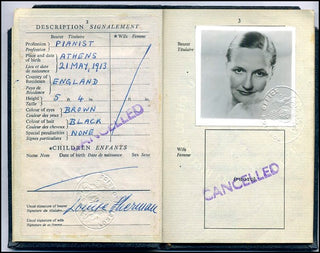 3
DESCRIPTION SIGNALEMENT
Bearer Titulaire * Wife Femme
Profession PIANIST
Profession
Place and date of birth ATHENS
Lieu et date de naissance 21 MAY, 1913
Country of Residence ENGLAND
Pays de Résidence
Height 5 ft. 4 in.
Taille
Colour of eyes BROWN
Couleur des yeux
Colour of hair BLACK
Couleur des cheveux
Special peculiarities NONE
Signes particuliers
CANCELLED
*CHILDREN ENFANTS
Name Nom Date of birth Date de naissance Sex Sexe
Usual signature of bearer
Signature du titulaire Louise Sherman
Usual signature of wife
Signature de sa femme
3
Bearer
Titulaire
Wife
Femme
CANCELLED